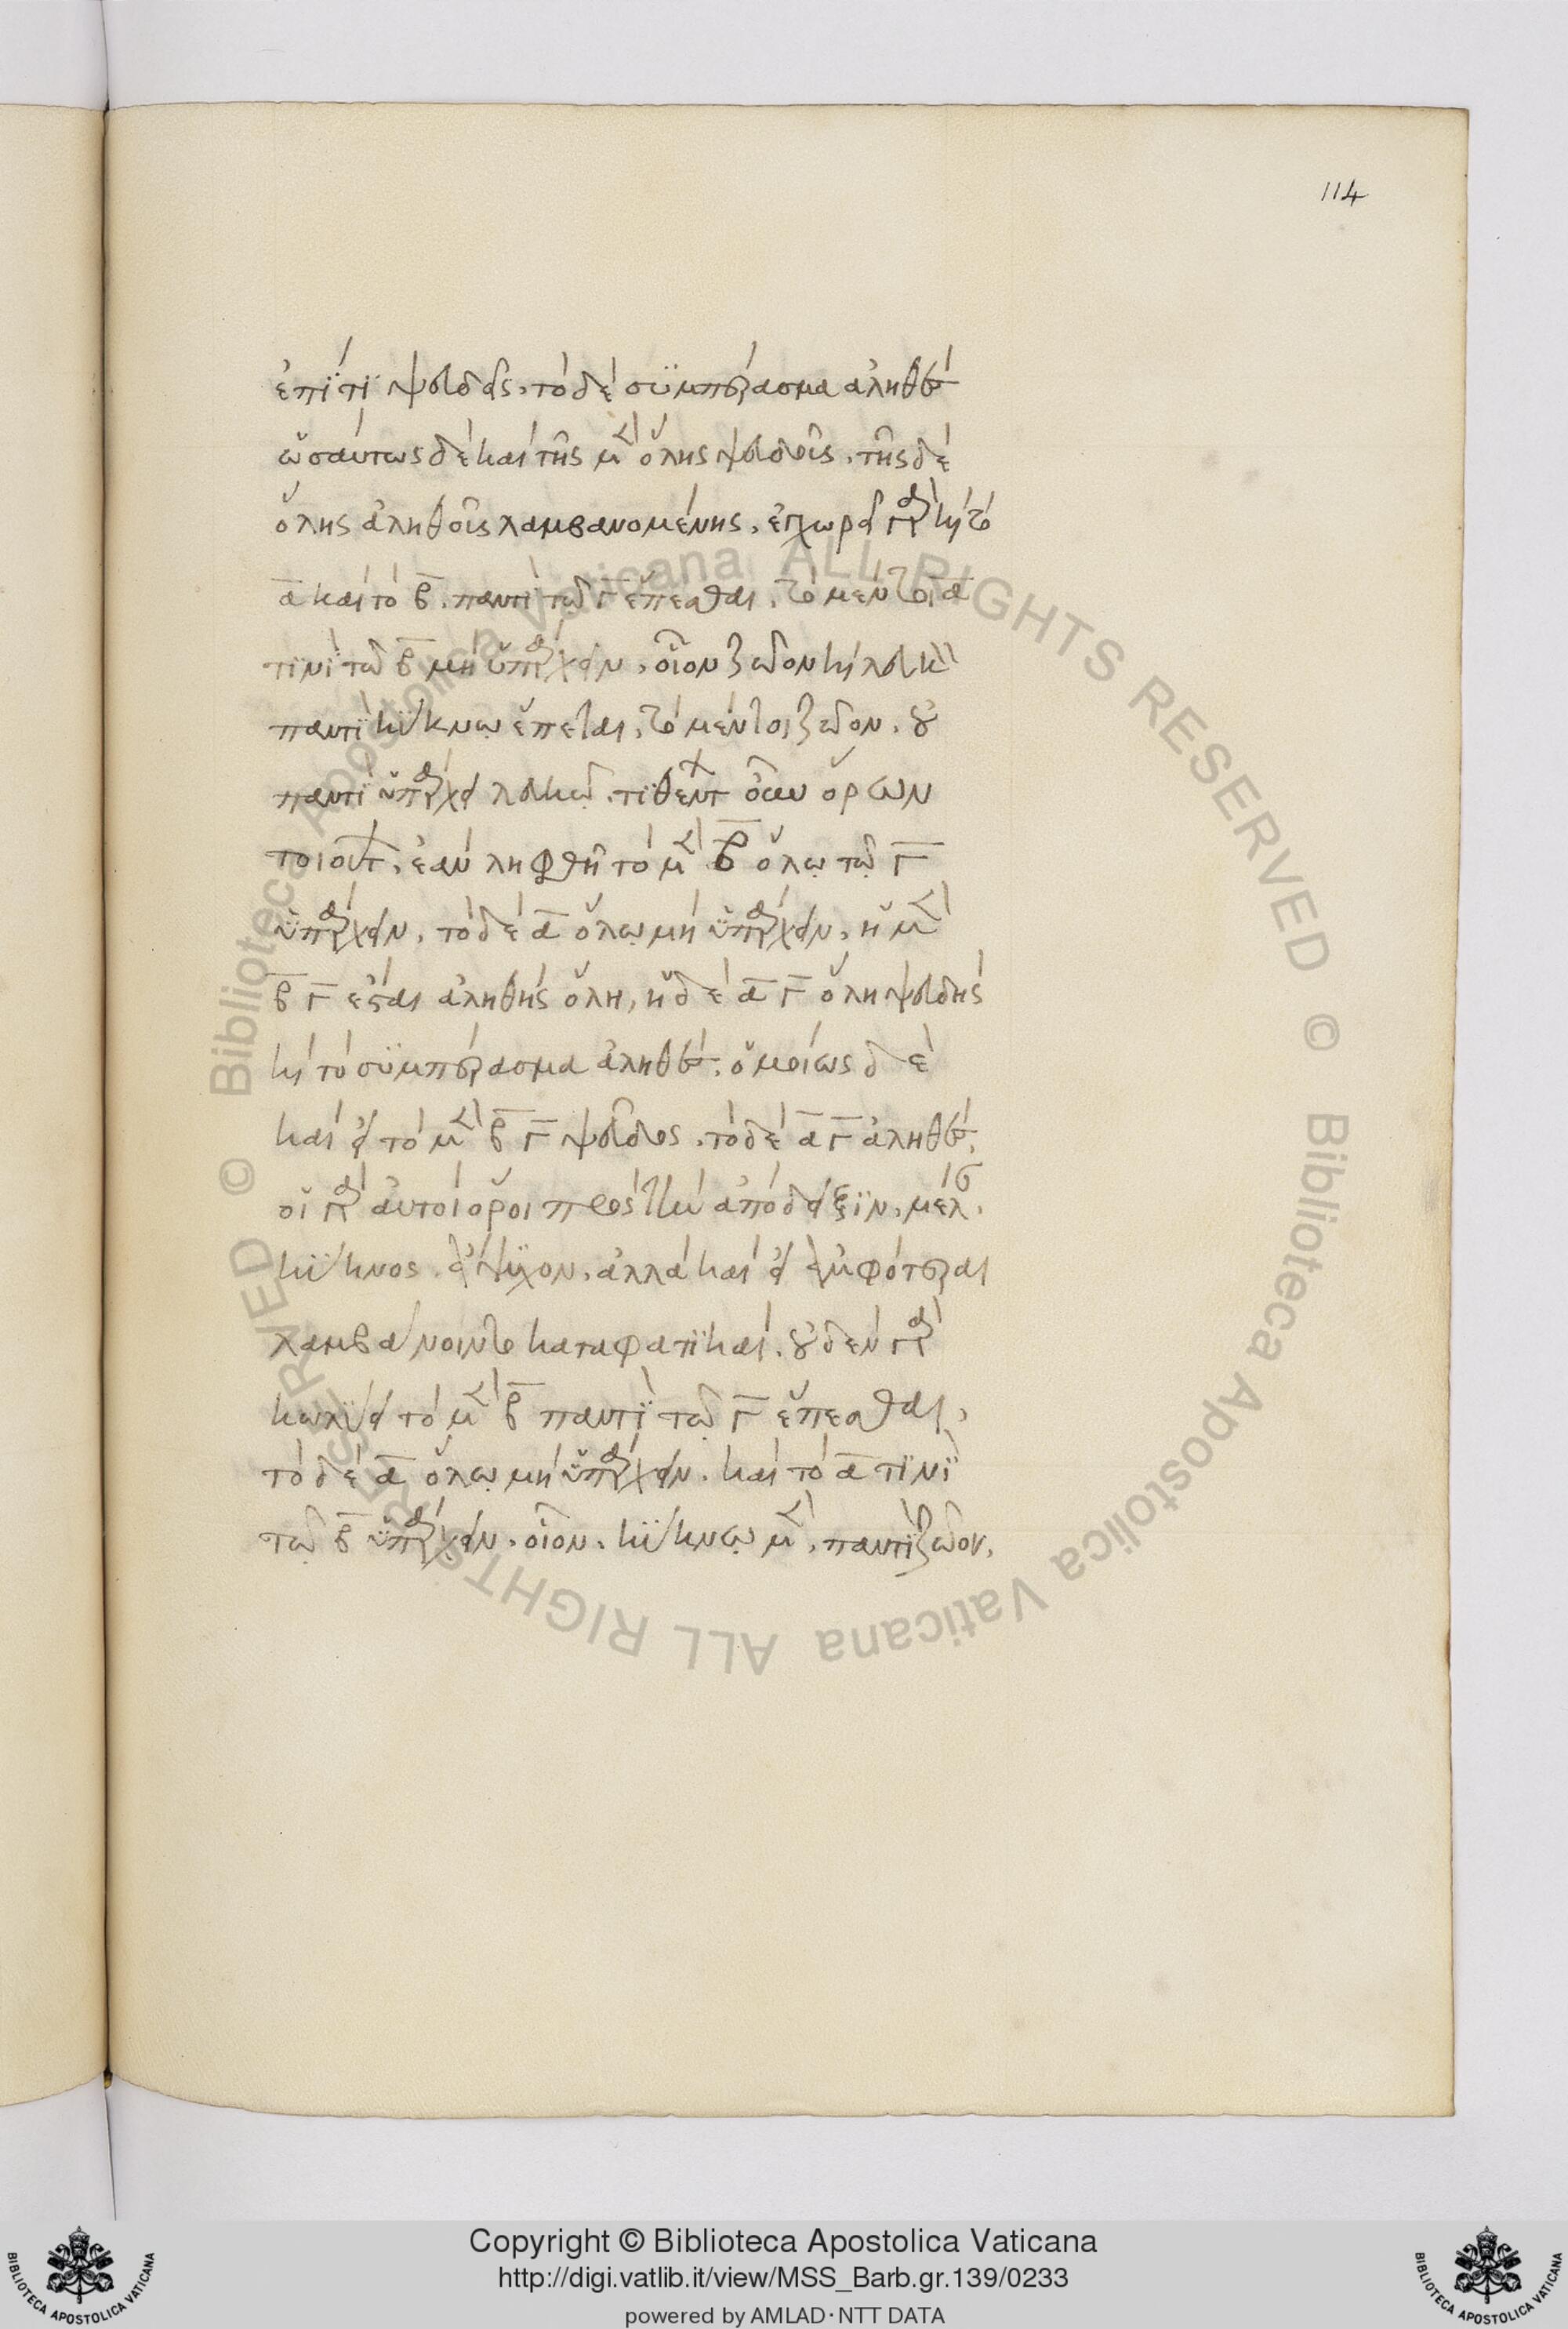 114
ἐπί τι ψευδὴς, τὸ δὲ συμπέρασμα ἀληθές
ὡσαύτως δὲ καὶ τῆς μὲν ὅλης ψευδοῦς, τῆς δὲ
ὅλης ἀληθοῦς λαμβανομένης. ἐγχωρεῖ γὰρ καὶ τὸ
α καὶ τὸ β. παντὶ τῷ γ ἕπεσθαι, τὸ μέντοι α
τινὶ τῷ β μὴ ὑπάρχειν, οἷον ζῷον καὶ λευκὸν
παντὶ κύκνῳ ἕπεται, τὸ μέντοι ζῷον, οὐ
παντὶ ὑπάρχει λευκῷ. τεθέντων οὖν ὅρων
τοιούτων, ἐὰν ληφθῇ τὸ μὲν β ὅλῳ τῷ γ
ὑπάρχειν, τὸ δὲ α ὅλῳ μὴ ὑπάρχειν, ἡ μὲν
β γ ἔσται ἀληθὴς ὅλη, ἡ δὲ α γ ὅλη ψευδής
καὶ τὸ συμπέρασμα ἀληθές. ὁμοίως δὲ
καὶ εἰ τὸ μὲν β γ ψεῦδος, τὸ δὲ α γ ἀληθές.
οἱ γὰρ αὐτοὶ ὅροι πρὸς τὴν ἀπόδειξιν, μέλ.
κύκνος. ἄψυχον, ἀλλὰ καὶ εἰ ἀμφότεραι
λαμβάνοιντο καταφατικαί, οὐδὲν γὰρ
κωλύει τὸ μὲν β παντὶ τῷ γ ἕπεσθαι,
τὸ δὲ α ὅλῳ μὴ ὑπάρχειν. καὶ τὸ α τινὶ
τῷ β ὑπάρχειν. οἷον, κύκνῳ μὲν, παντὶ ζῷον,
© Biblioteca Apostolica Vaticana ALL RIGHTS RESERVED © Biblioteca Apostolica Vaticana ALL RIGHTS RESERVED
Copyright © Biblioteca Apostolica Vaticana
http://digi.vatlib.it/view/MSS_Barb.gr.139/0233
powered by AMLAD·NTT DATA
BIBLIOTECA APOSTOLICA VATICANA
BIBLIOTECA APOSTOLICA VATICANA